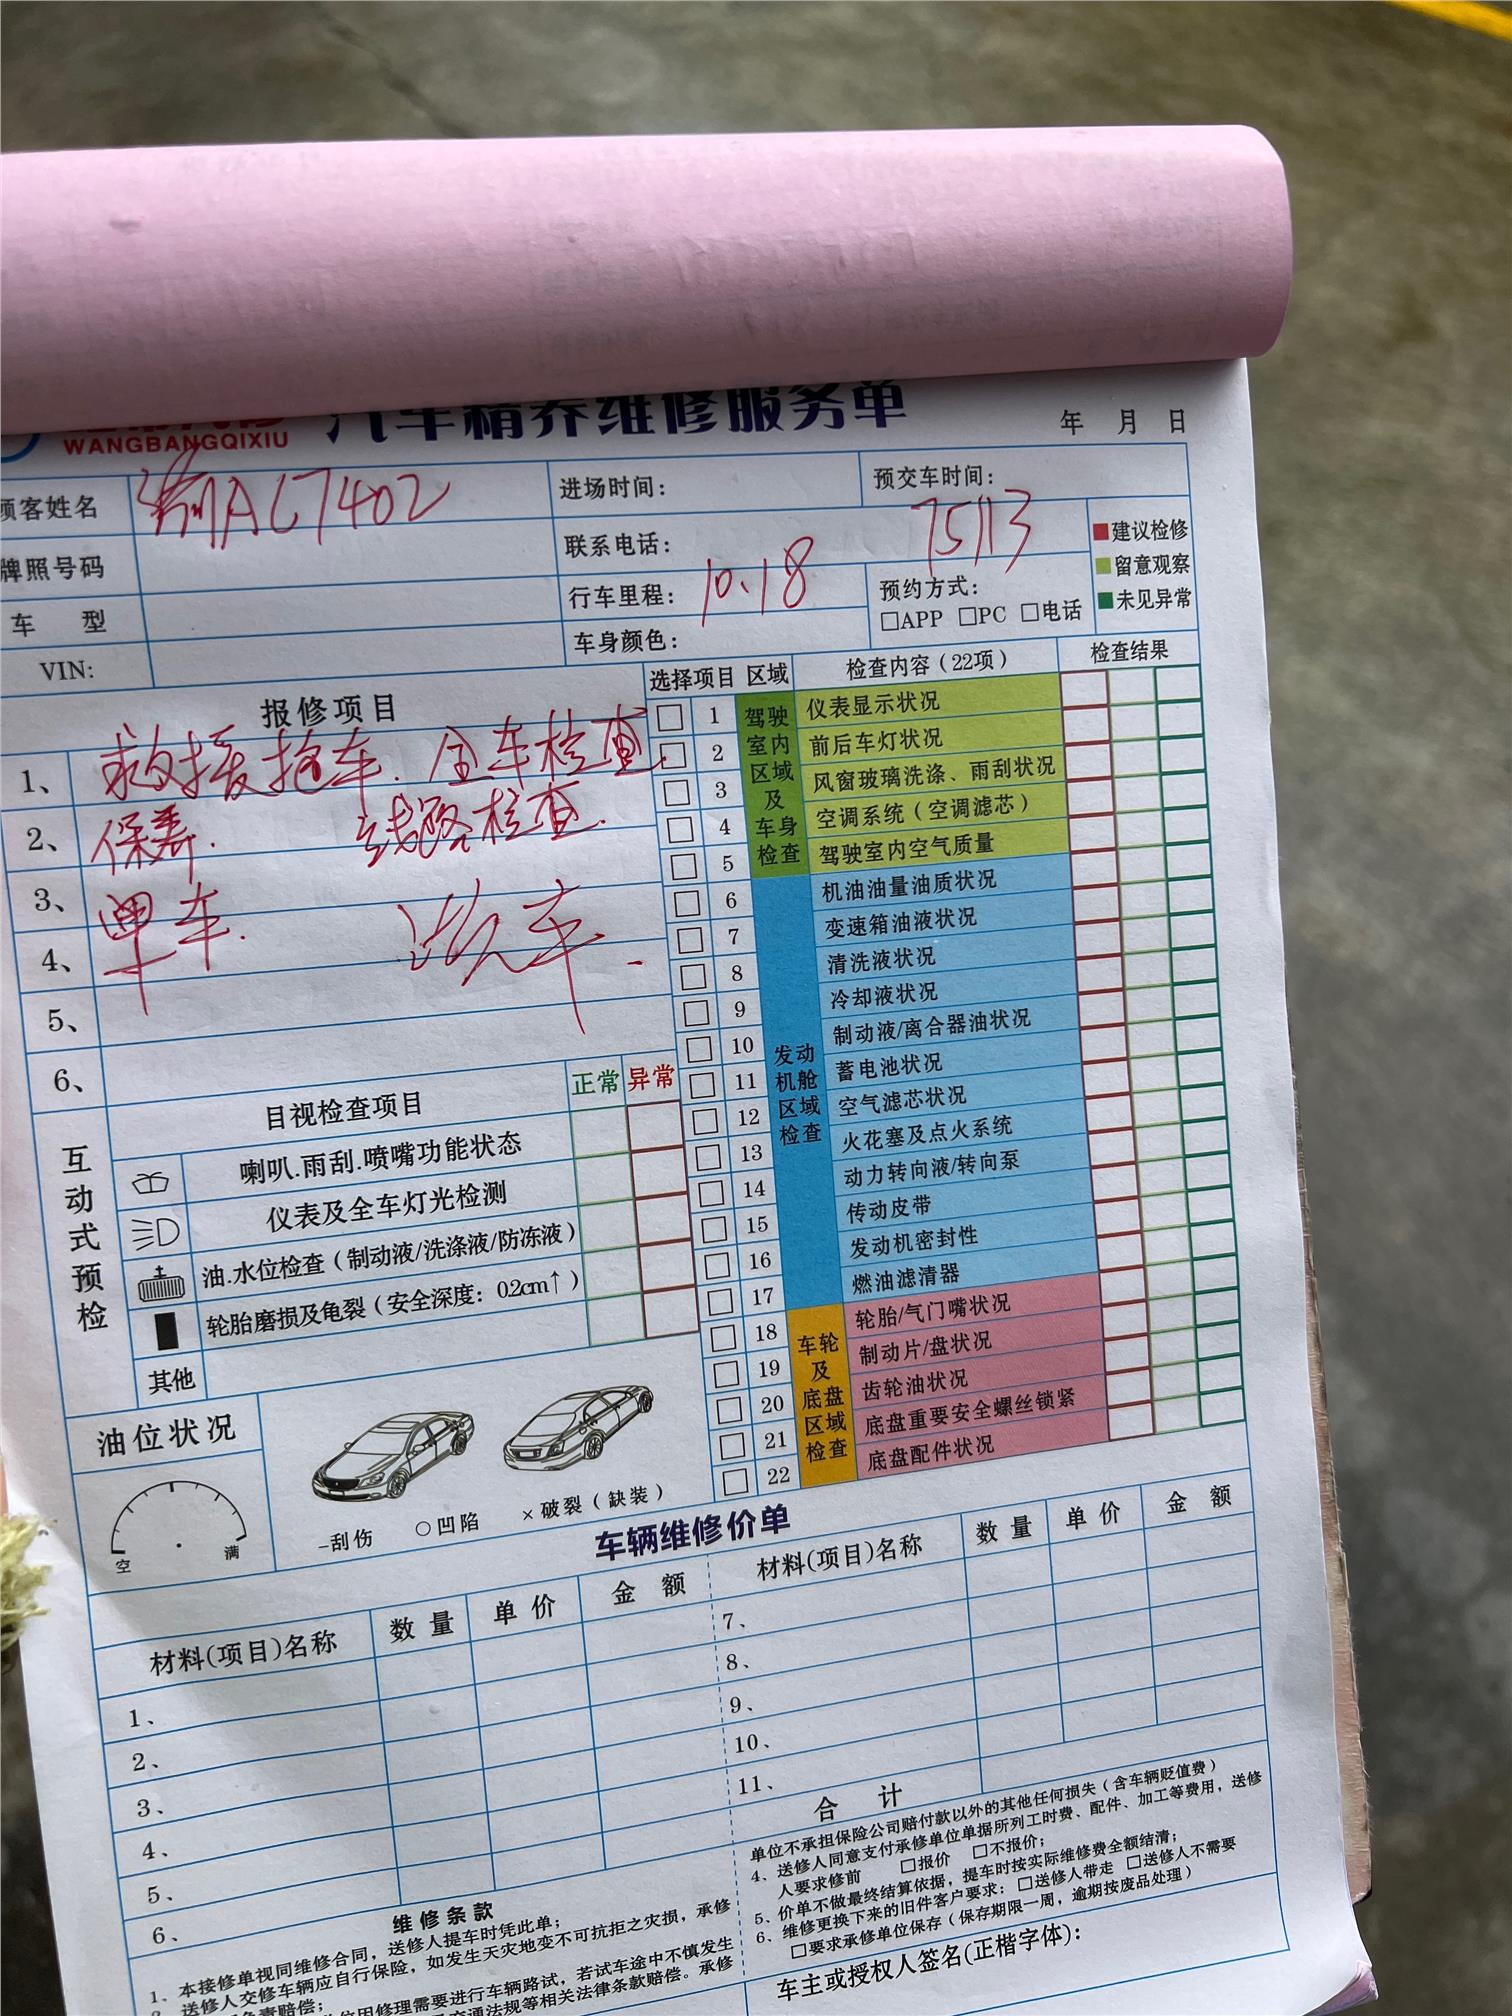 WANGBANGQIXIU
汽车精养维修服务单
年 月 日
顾客姓名
AC7402
进场时间:
预交车时间:
牌照号码
联系电话:
75113
行车里程:
10.18
预约方式:
□APP □PC □电话
车 型
车身颜色:
VIN:
■建议检修
■留意观察
■未见异常
报修项目
1、救援拖车. 全车检查.
2、保养. 线路检查.
3、
4、
5、
6、
洗车.
选择项目 区域 检查内容(22项) 检查结果
驾驶室内区域及车身检查
1 仪表显示状况
2 前后车灯状况
3 风窗玻璃洗涤、雨刮状况
4 空调系统(空调滤芯)
5 驾驶室内空气质量
发动机舱区域检查
6 机油油量油质状况
7 变速箱油液状况
8 清洗液状况
9 冷却液状况
10 制动液/离合器油状况
11 蓄电池状况
12 空气滤芯状况
13 火花塞及点火系统
14 动力转向液/转向泵
15 传动皮带
16 发动机密封性
17 燃油滤清器
车轮及底盘区域检查
18 轮胎/气门嘴状况
19 制动片/盘状况
20 齿轮油状况
21 底盘重要安全螺丝锁紧
22 底盘配件状况
互动式预检
目视检查项目 正常 异常
喇叭.雨刮.喷嘴功能状态
仪表及全车灯光检测
油.水位检查(制动液/洗涤液/防冻液)
轮胎磨损及龟裂(安全深度：0.2cm↑)
其他
油位状况
空 满
–刮伤 ○凹陷 ×破裂(缺装)
车辆维修价单
材料(项目)名称 数量 单价 金额
1、
2、
3、
4、
5、
6、
材料(项目)名称 数量 单价 金额
7、
8、
9、
10、
11、
合 计
维修条款
1、本接修单视同维修合同，送修人提车时凭此单；
送修人交修车辆应自行保险，如发生天灾地变不可抗拒之灾损，承修
负责赔偿；
因修理需要进行车辆路试，若试车途中不慎发生
交通法规等相关法律条款赔偿。承修
单位不承担保险公司赔付款以外的其他任何损失(含车辆贬值费)
4、送修人同意支付承修单位单据所列工时费、配件、加工等费用，送修
人要求修前 □报价 □不报价；
5、价单不做最终结算依据，提车时按实际维修费全额结清；
6、维修更换下来的旧件客户要求：□送修人带走 □送修人不需要
□要求承修单位保存(保存期限一周，逾期按废品处理)
车主或授权人签名(正楷字体)：